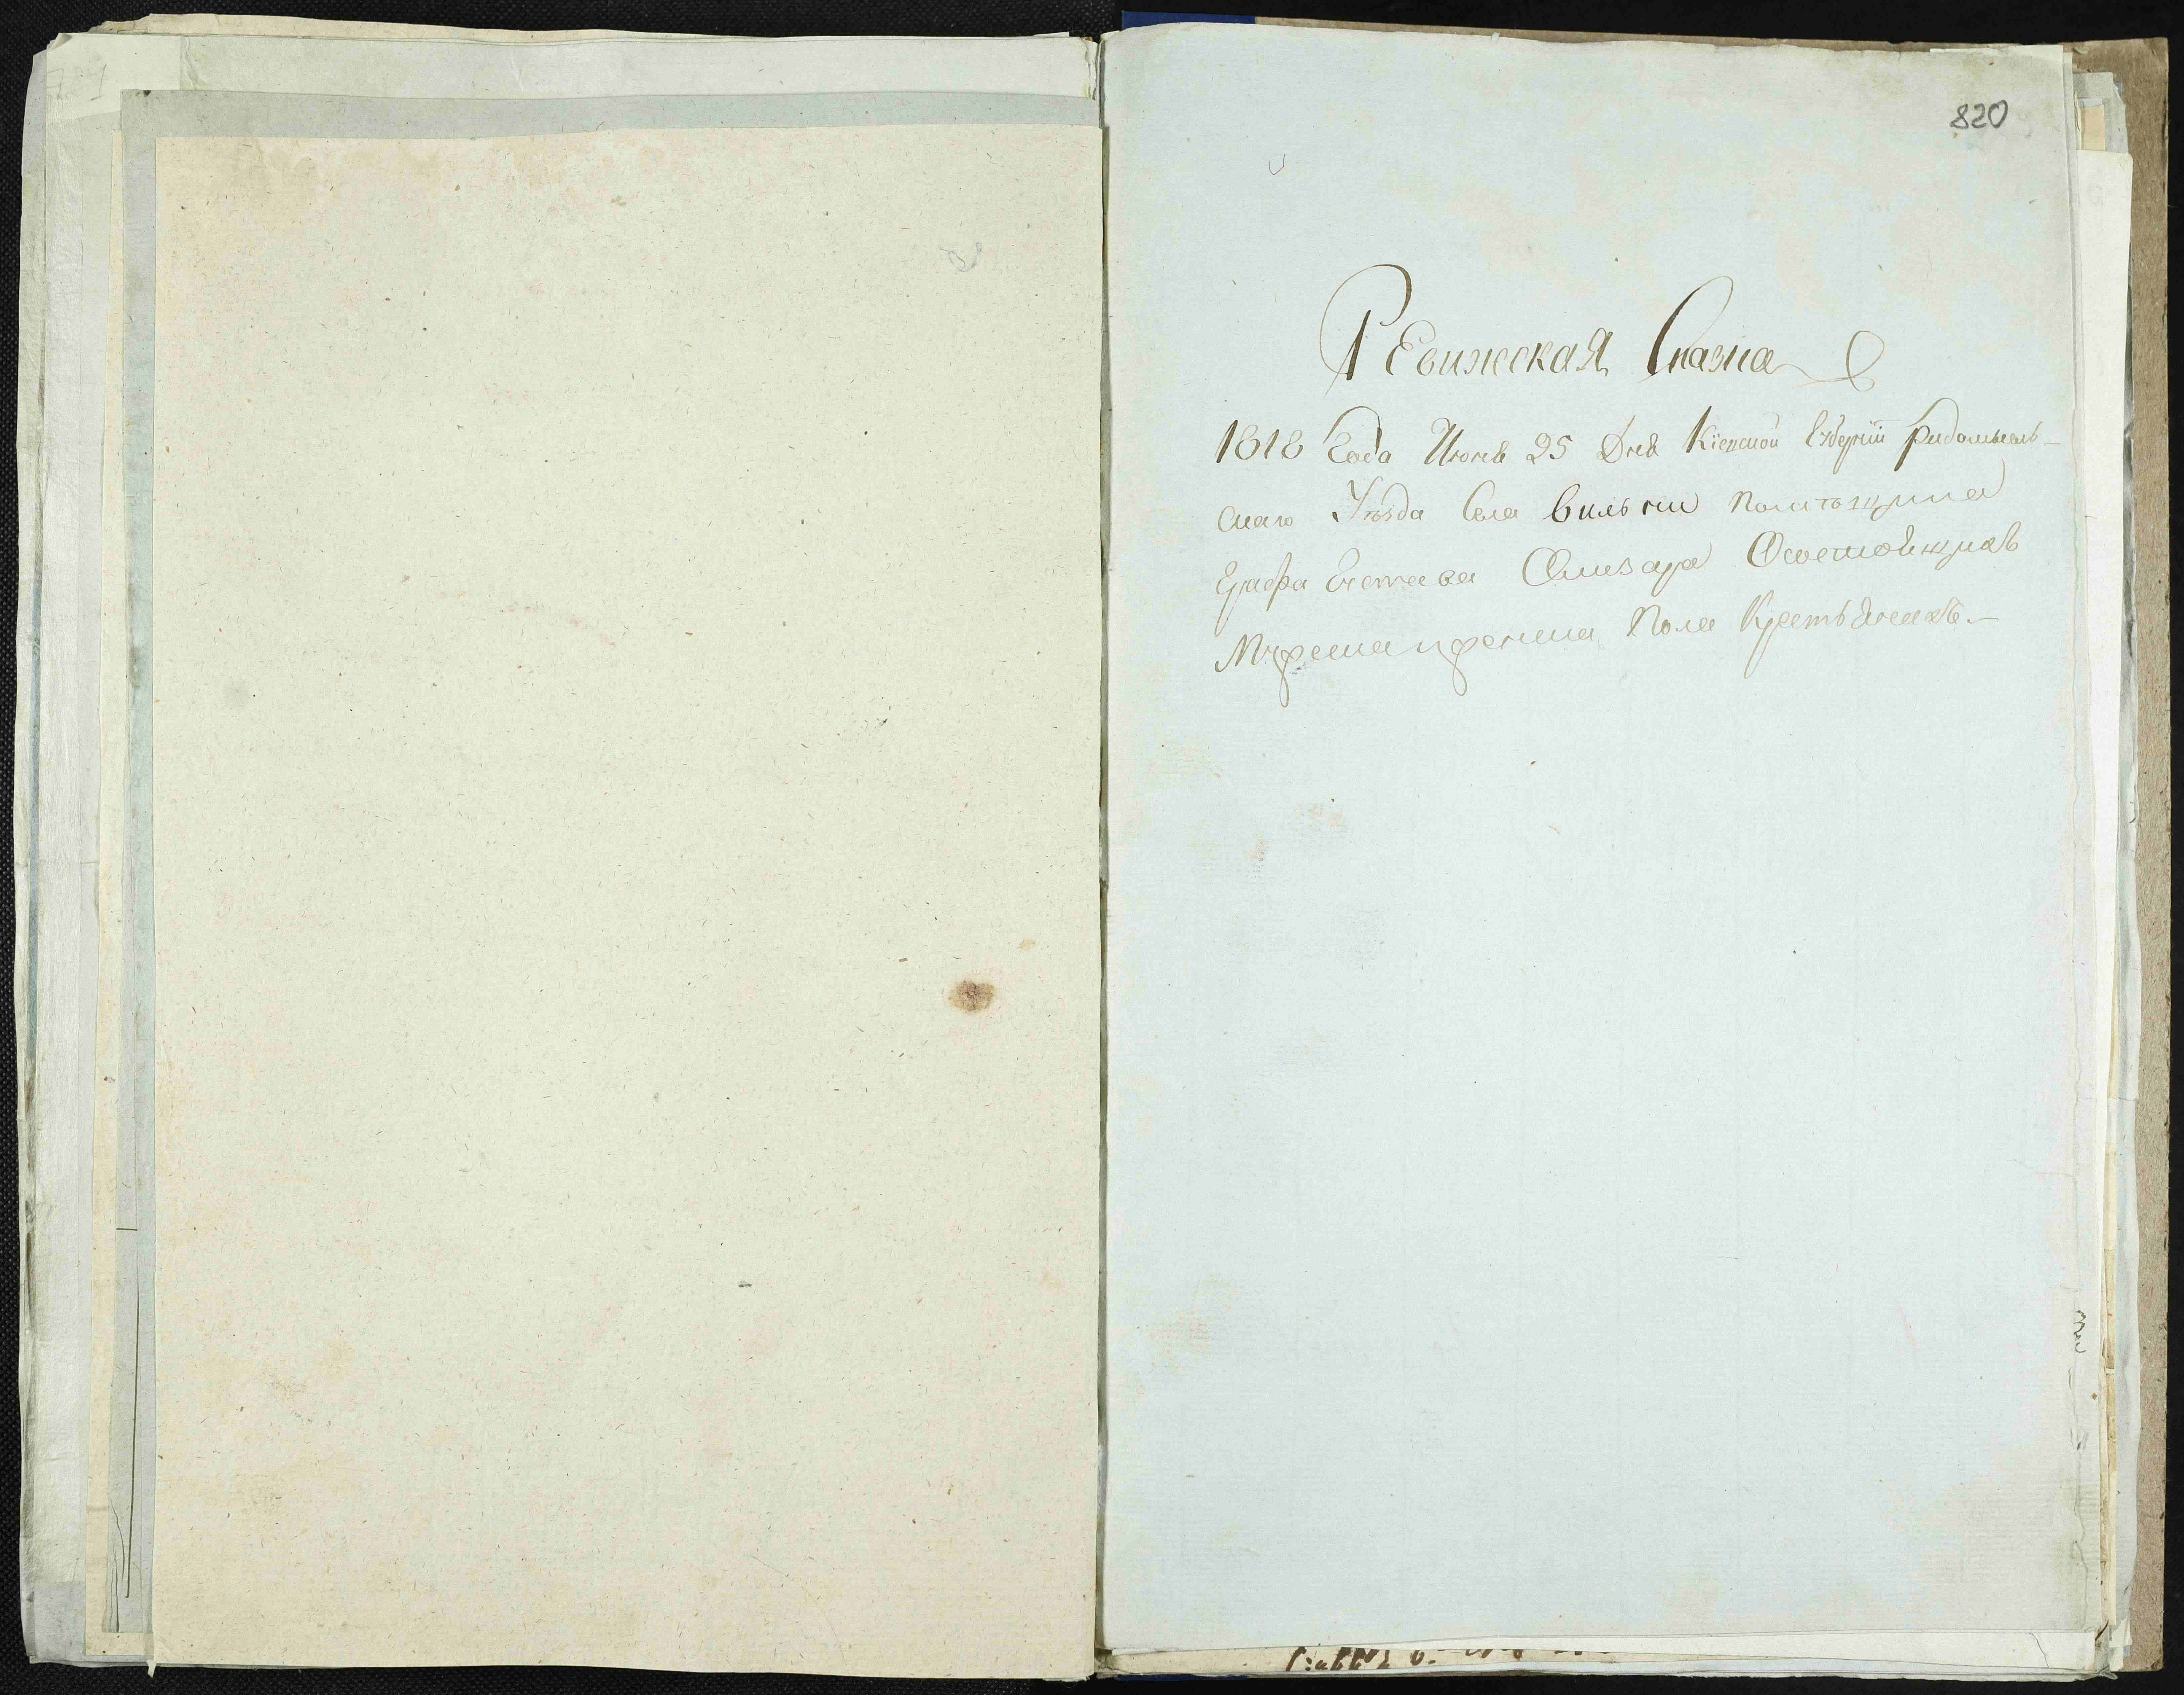 820
Ревижская Сказка
1818 Года Июня 25 Дня Кіевской Губерніи Радомысль-
скаго Уѣзда Села Вильни Помѣщика
Графа Густава Олизара Осостоящихъ
Мужеска и женска Пола Крестьянахъ.-